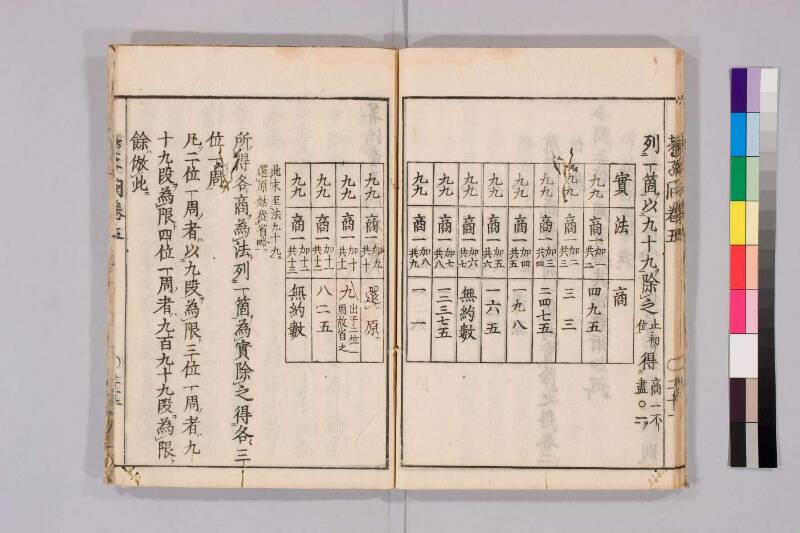 列一箇以九十九除之止初位得商一不盡〇一
實 法 商
九九 商一加一共二 四九五
九九 商一加二共三 三三
九九 商一加三共四 二四七五
九九 商一加四共五 一九八
九九 商一加五共六 一六五
九九 商一加六共七 無約數
九九 商一加七共八 一二三七五
九九 商一加八共九 一一
九九 商一加九共十 還原
九九 商一加十共十一 九出于三位一周故省之
九九 商一加十一共十二 八二五
九九 商一加十二共十三 無約數
此末至法九十九
還原姑從省略
所得各商為法列一箇為實除之得各三
位一周
凡二位一周者以九段為限三位一周者九
十九段為限四位一周者九百九十九段為限
餘倣此